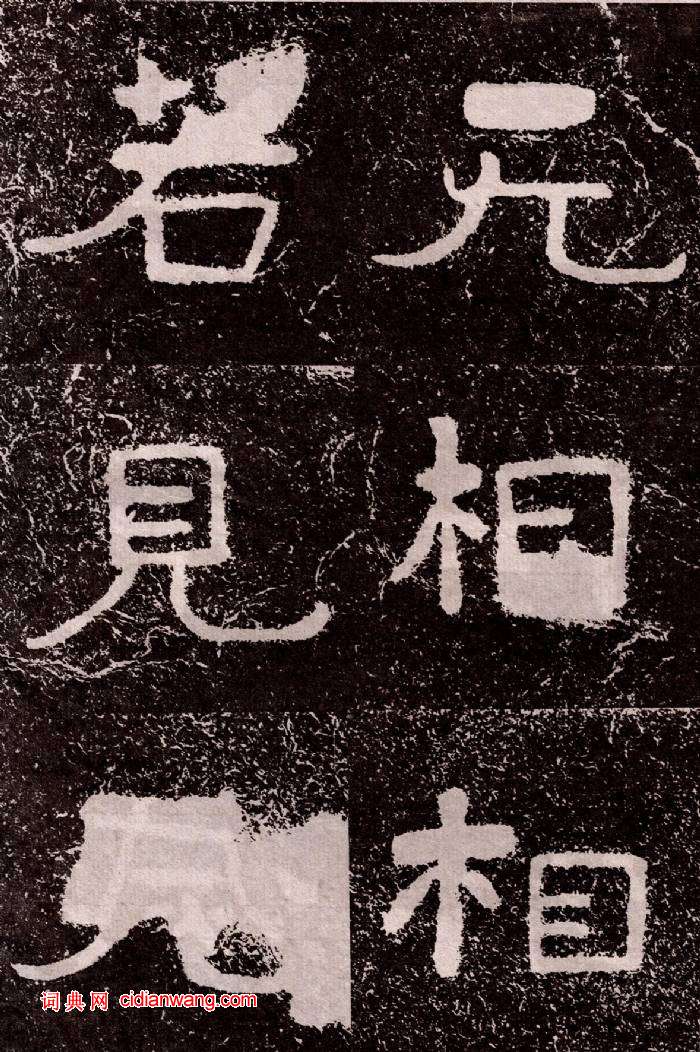 无相相
若見
词典网 cidianwang.com